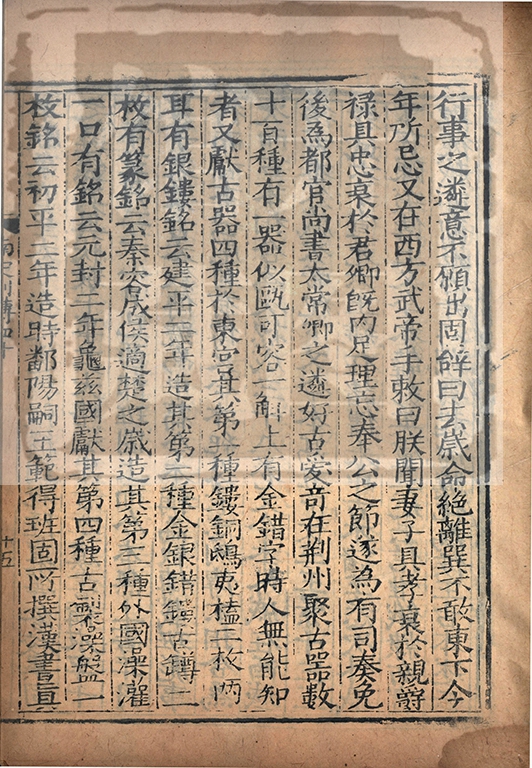 行事之遴意不願出固辭曰去歲命絕離巽不敢東下今
年所忌又在西方武帝手敕曰朕聞妻子具孝衰於親爵
祿具忠衰於君卿既內足理忘奉公之節遂為有司奏免
後為都官尚書太常卿之遴好古愛奇在荆州聚古器數
十百種有一器似甌可容一斛上有金錯字時人無能知
者又獻古器四種於東宮其第一種鏤銅鴟夷榼二枚兩
耳有銀鏤銘云建平二年造其第二種金銀錯鏤古罇二
枚有篆銘云秦容成侯適楚之歲造其第三種外國澡灌
一口有銘云元封二年龜茲國獻其第四種古製澡盤一
枚銘云初平二年造時鄱陽嗣王範得班固所撰漢書真
十五